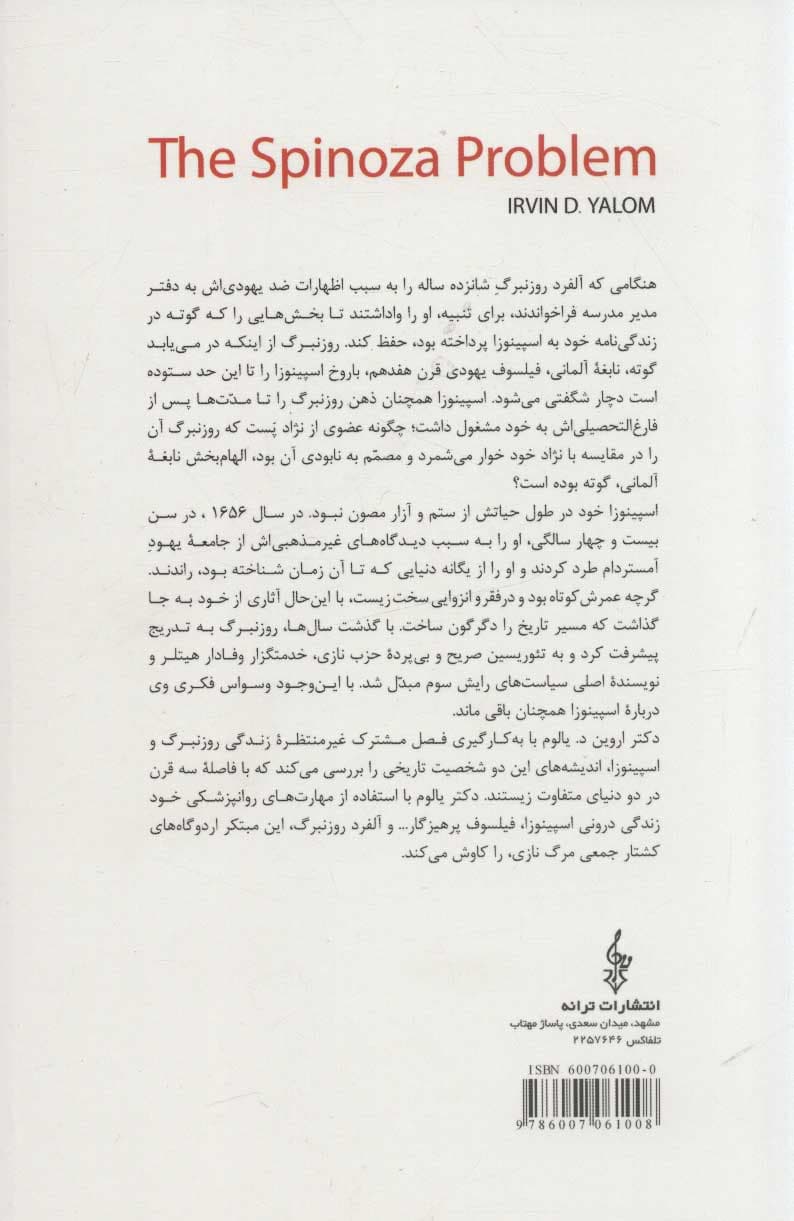 The Spinoza Problem
IRVIN D. YALOM
هنگامی که آلفرد روزنبرگِ شانزده ساله را به سبب اظهارات ضد یهودی‌اش به دفتر
مدیر مدرسه فراخواندند، برای تنبیه، او را واداشتند تا بخش‌هایی را که گوته در
زندگی‌نامه خود به اسپینوزا پرداخته بود، حفظ کند. روزنبرگ از اینکه در می‌یابد
گوته، نابغۀ آلمانی، فیلسوف یهودی قرن هفدهم، باروخ اسپینوزا را تا این حد ستوده
است دچار شگفتی می‌شود. اسپینوزا همچنان ذهن روزنبرگ را تا مدّت‌ها پس از
فارغ‌التحصیلی‌اش به خود مشغول داشت؛ چگونه عضوی از نژاد پَست که روزنبرگ آن
را در مقایسه با نژاد خود خوار می‌شمرد و مصمّم به نابودی آن بود، الهام‌بخش نابغۀ
آلمانی، گوته بوده است؟
اسپینوزا خود در طول حیاتش از ستم و آزار مصون نبود. در سال ۱۶۵۶ ، در سن
بیست و چهار سالگی، او را به سبب دیدگاه‌های غیرمذهبی‌اش از جامعۀ یهودِ
آمستردام طرد کردند و او را از یگانه دنیایی که تا آن زمان شناخته بود، راندند.
گرچه عمرش کوتاه بود و در فقر و انزوایی سخت زیست، با این‌حال آثاری از خود به جا
گذاشت که مسیر تاریخ را دگرگون ساخت. با گذشت سال‌ها، روزنبرگ به تدریج
پیشرفت کرد و به تئوریسین صریح و بی‌پردۀ حزب نازی، خدمتگزار وفادار هیتلر و
نویسندۀ اصلی سیاست‌های رایش سوم مبدّل شد. با این‌وجود وسواس فکری وی
دربارۀ اسپینوزا همچنان باقی ماند.
دکتر اروین د. یالوم با به‌کارگیری فصل مشترک غیرمنتظرۀ زندگی روزنبرگ و
اسپینوزا، اندیشه‌های این دو شخصیت تاریخی را بررسی می‌کند که با فاصلۀ سه قرن
در دو دنیای متفاوت زیستند. دکتر یالوم با استفاده از مهارت‌های روانپزشکی خود
زندگی درونی اسپینوزا، فیلسوف پرهیزگار... و آلفرد روزنبرگ، این مبتکر اردوگاه‌های
کشتار جمعی مرگ نازی، را کاوش می‌کند.
انتشارات ترانه
مشهد، میدان سعدی، پاساژ مهتاب
تلفاکس ۲۲۵۷۶۴۶
ISBN 600706100-0
9 786007 061008